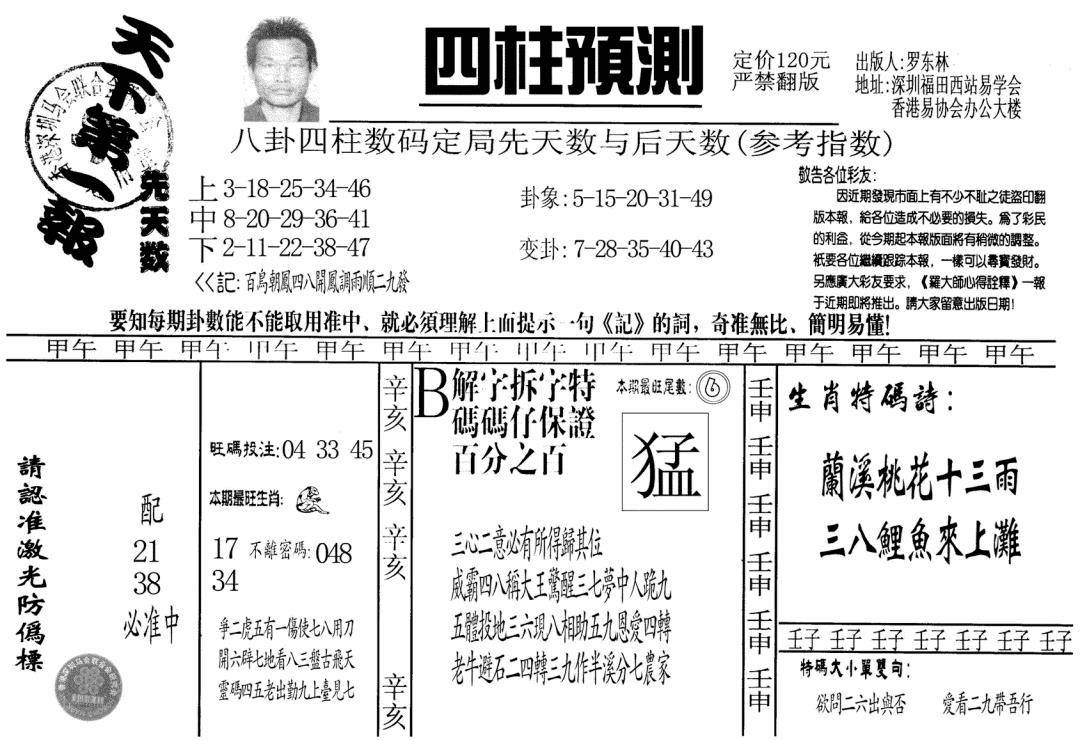 天下第一報
四柱預測
定价120元
严禁翻版
出版人:罗东林
地址:深圳福田西站易学会
香港易协会办公大楼
八卦四柱数码定局先天数与后天数(参考指数)
先天数
上 3-18-25-34-46
中 8-20-29-36-41
下 2-11-22-38-47
卦象:5-15-20-31-49
变卦:7-28-35-40-43
<<記:百鳥朝鳳四八開鳳調雨順二九發
敬告各位彩友:
因近期發現市面上有不少不耻之徒盜印翻
版本報，給各位造成不必要的損失。爲了彩民
的利益，從今期起本報版面將有稍微的調整。
衹要各位繼續跟踪本報，一樣可以尋寶發財。
另應廣大彩友要求，《羅大師心得詮釋》一報
于近期即將推出。請大家留意出版日期!
要知每期卦數能不能取用准中、就必須理解上面提示一句《記》的詞，奇准無比、簡明易懂!
甲午 甲午 甲午 甲午 甲午 甲午 甲午 甲午 甲午 甲午 甲午 甲午 甲午 甲午 甲午
請認准激光防僞標
配
21
38
必准中
旺碼投注:04 33 45
本期最旺生肖:
17 不離密碼:048
34
爭二虎五有一傷使七八用刀
開六辟七地看八三盤古飛天
靈碼四五老出勤九上臺見七
辛亥
辛亥
辛亥
辛亥
B
解字拆字特
碼碼仔保證
百分之百
本期最旺尾數:6
猛
三心二意必有所得歸其位
威霸四八稱大王驚醒三七夢中人跪九
五體投地三六現八相助五九恩愛四轉
老牛避石二四轉三九作半溪分七農家
壬申
壬申
壬申
壬申
壬申
壬申
生肖特碼詩:
蘭溪桃花十三雨
三八鯉魚來上灘
壬子 壬子 壬子 壬子 壬子 壬子 壬子
特碼大小單雙句:
欲問二六出與否 愛看二九帶吾行